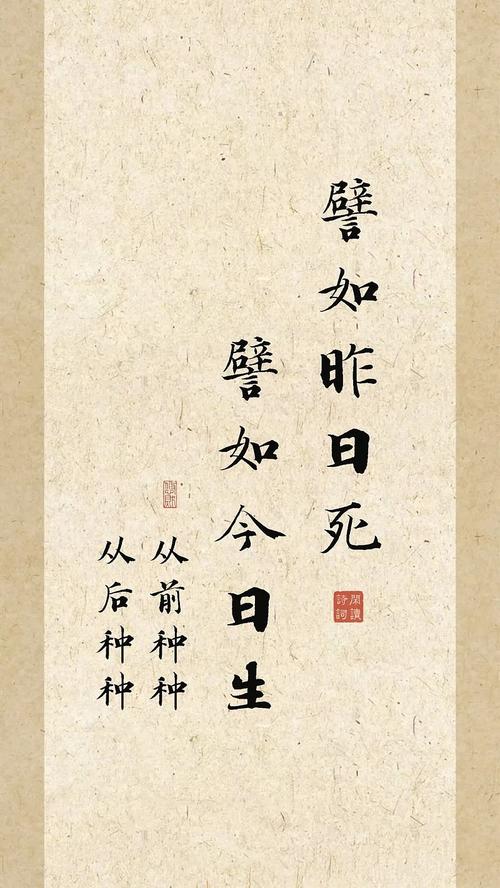 譬如昨日死
閑讀詩詞
譬如今日生
从前种种
从后种种